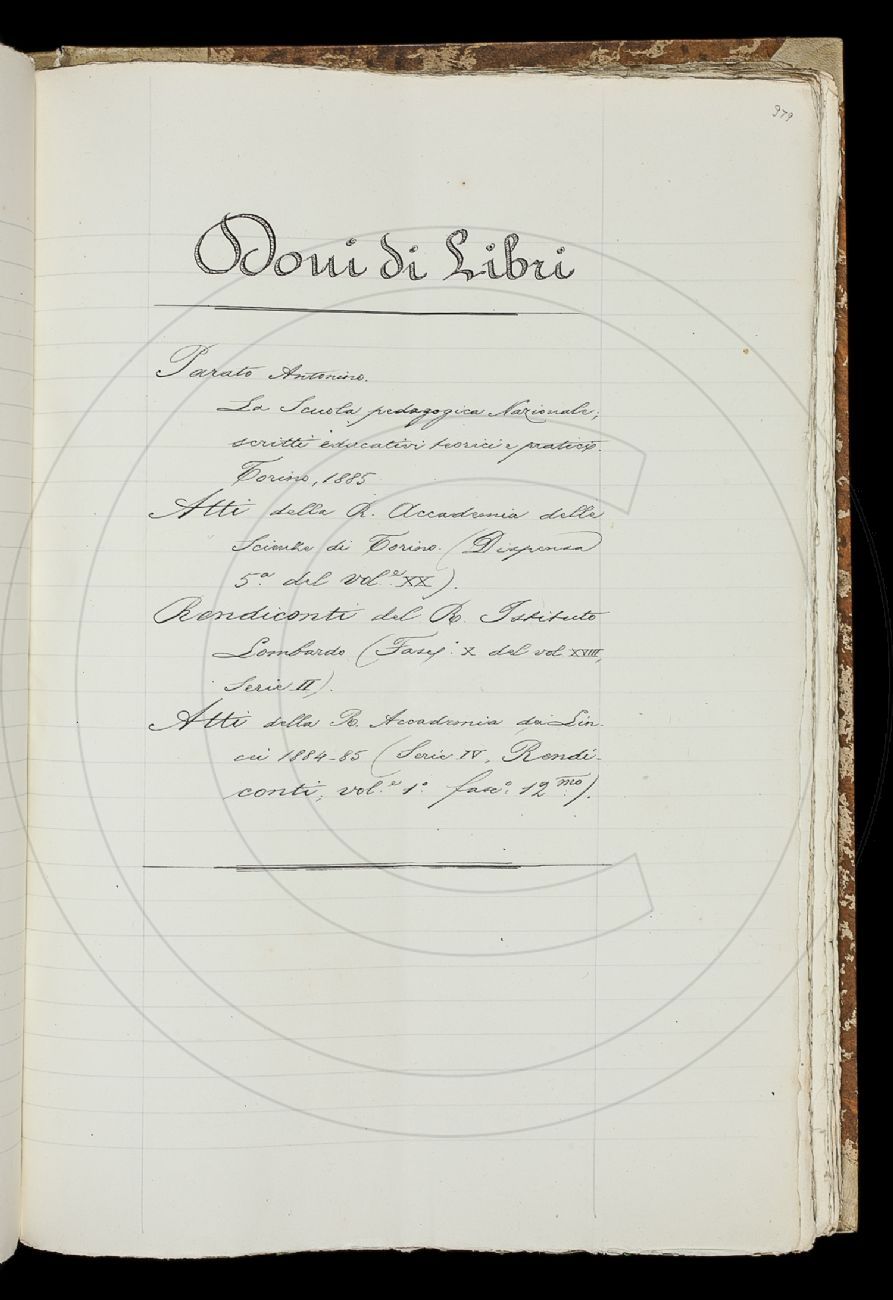 379
Doni di Libri
Parato Antonino.
La Scuola pedagogica Nazionale;
scritti educativi teorici e pratici.
Torino, 1885
Atti della R. Accademia delle
Scienze di Torino. (Dispensa
5ª del vol.e XX).
Rendiconti del R. Istituto
Lombardo (Fasc.º X del vol XVIII,
Serie II).
Atti della R. Accademia dei Lin-
cei 1884-85 (Serie IV, Rendi-
conti, vol.e 1º fasc.º 12mo).